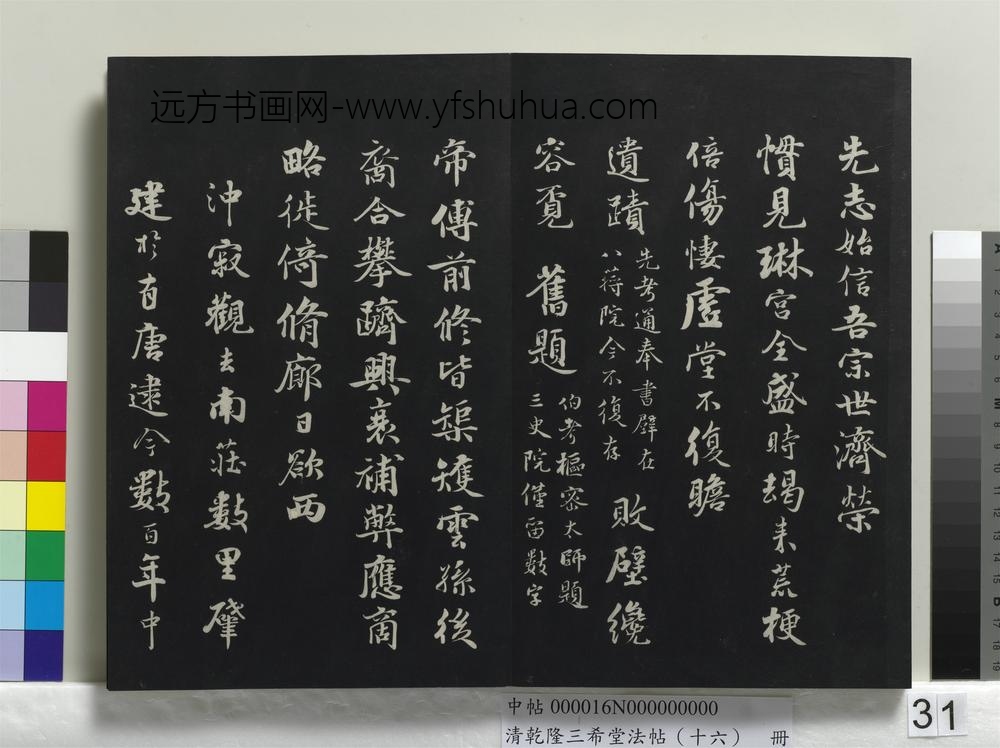 远方书画网-www.yfshuhua.com
先志始信吾宗世濟榮
慣見琳宮全盛時朅来荒梗
倍傷悽虛堂不復瞻
遺蹟
先考通奉書壁在
八蒋院今不復存
敗壁纔
容覔舊題
伯考樞密太師題
三史院僅留數字
帝傅前修皆榘矱雲孫後
裔合攀躋興衰補弊應商
略徙倚脩廊日欲西
沖寂觀去南莊數里肇
建於有唐逮今數百年中
中帖 000016N000000000
清乾隆三希堂法帖（十六） 冊
31